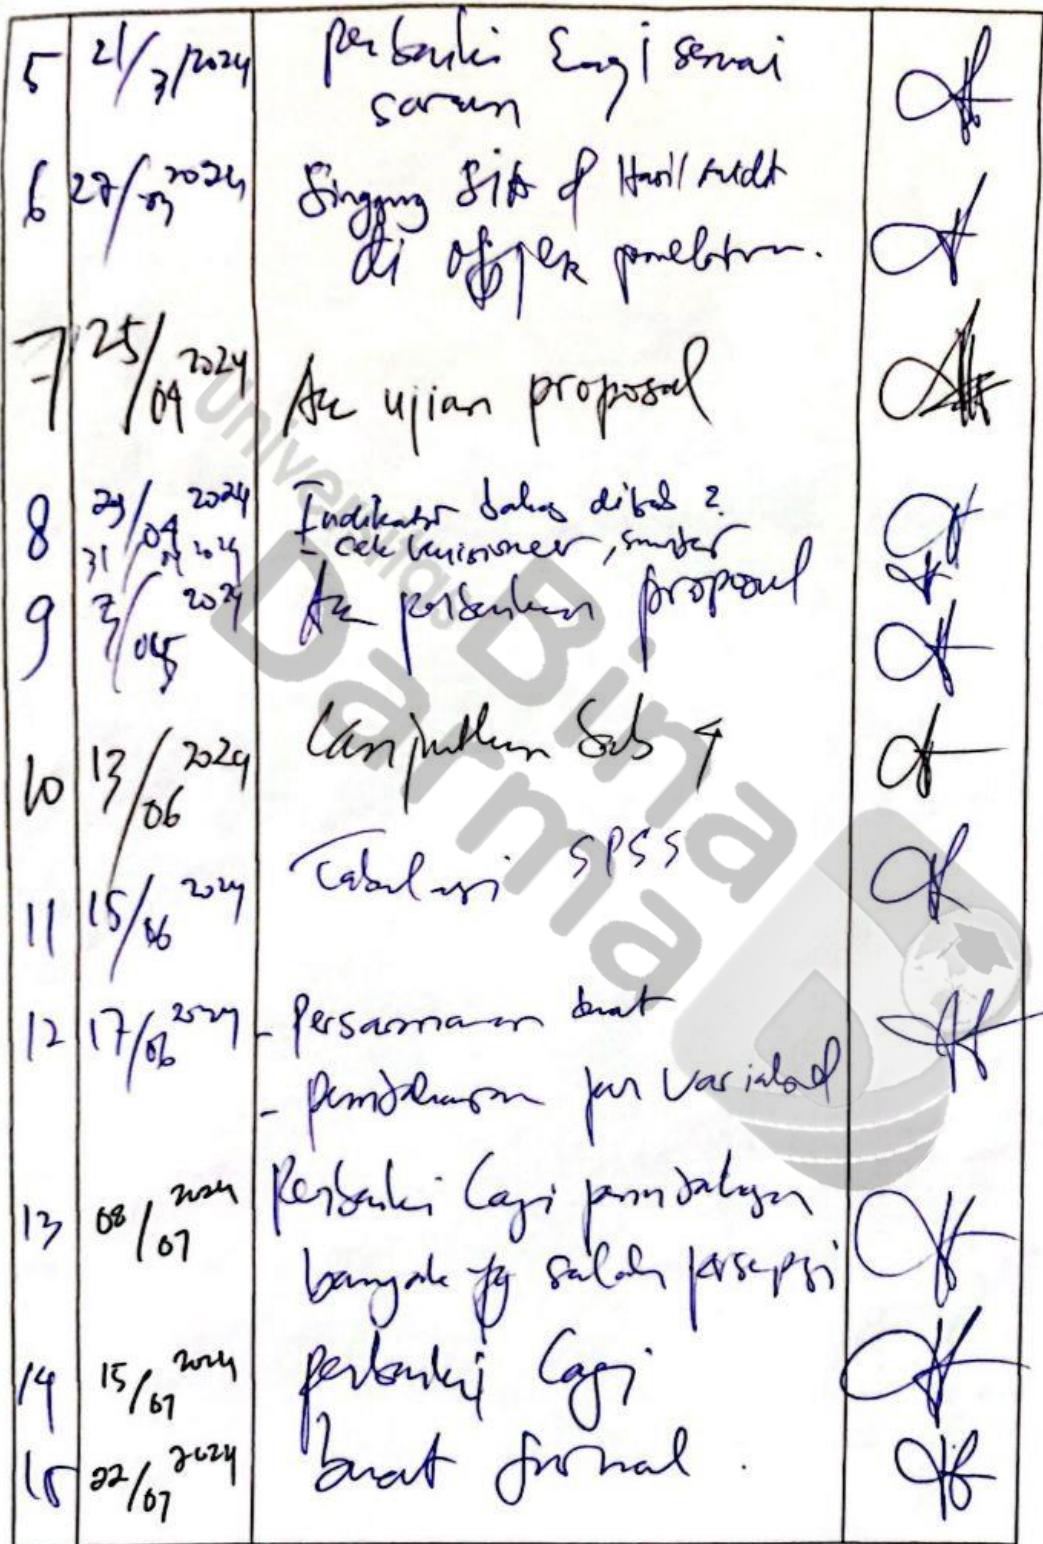 5 21/3/2024 perbaiki lagi sesuai
saran
6 27/03 2024 Singgung SIA & Hasil Audit
di objek penelitian.
7 25/04 2024 Acc ujian proposal
8 29/04 2024 Indikator bahas dibab 2
31/ 2024 - cek kuisioner, sumber
9 7/05 2024 Acc perbaikan proposal
10 13/06 2024 Lanjutkan bab 4
11 15/06 2024 Tabulasi SPSS
12 17/06 2024 - Persamaan buat
- pembahasan per variabel
13 08/07 2024 Perbaiki lagi pembahasan
banyak yg salah persepsi
14 15/07 2024 perbaiki lagi
15 22/07 2024 buat jurnal.
Universitas
Bina
Darma